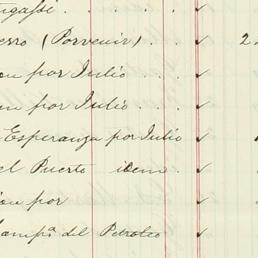 erro (Porvenir) . . ✓ 2
por Julio . . ✓
por Julio . . ✓
Esperanza por Julio ✓
el Puerto idem . ✓
por ✓
Campª del Petroleo ✓